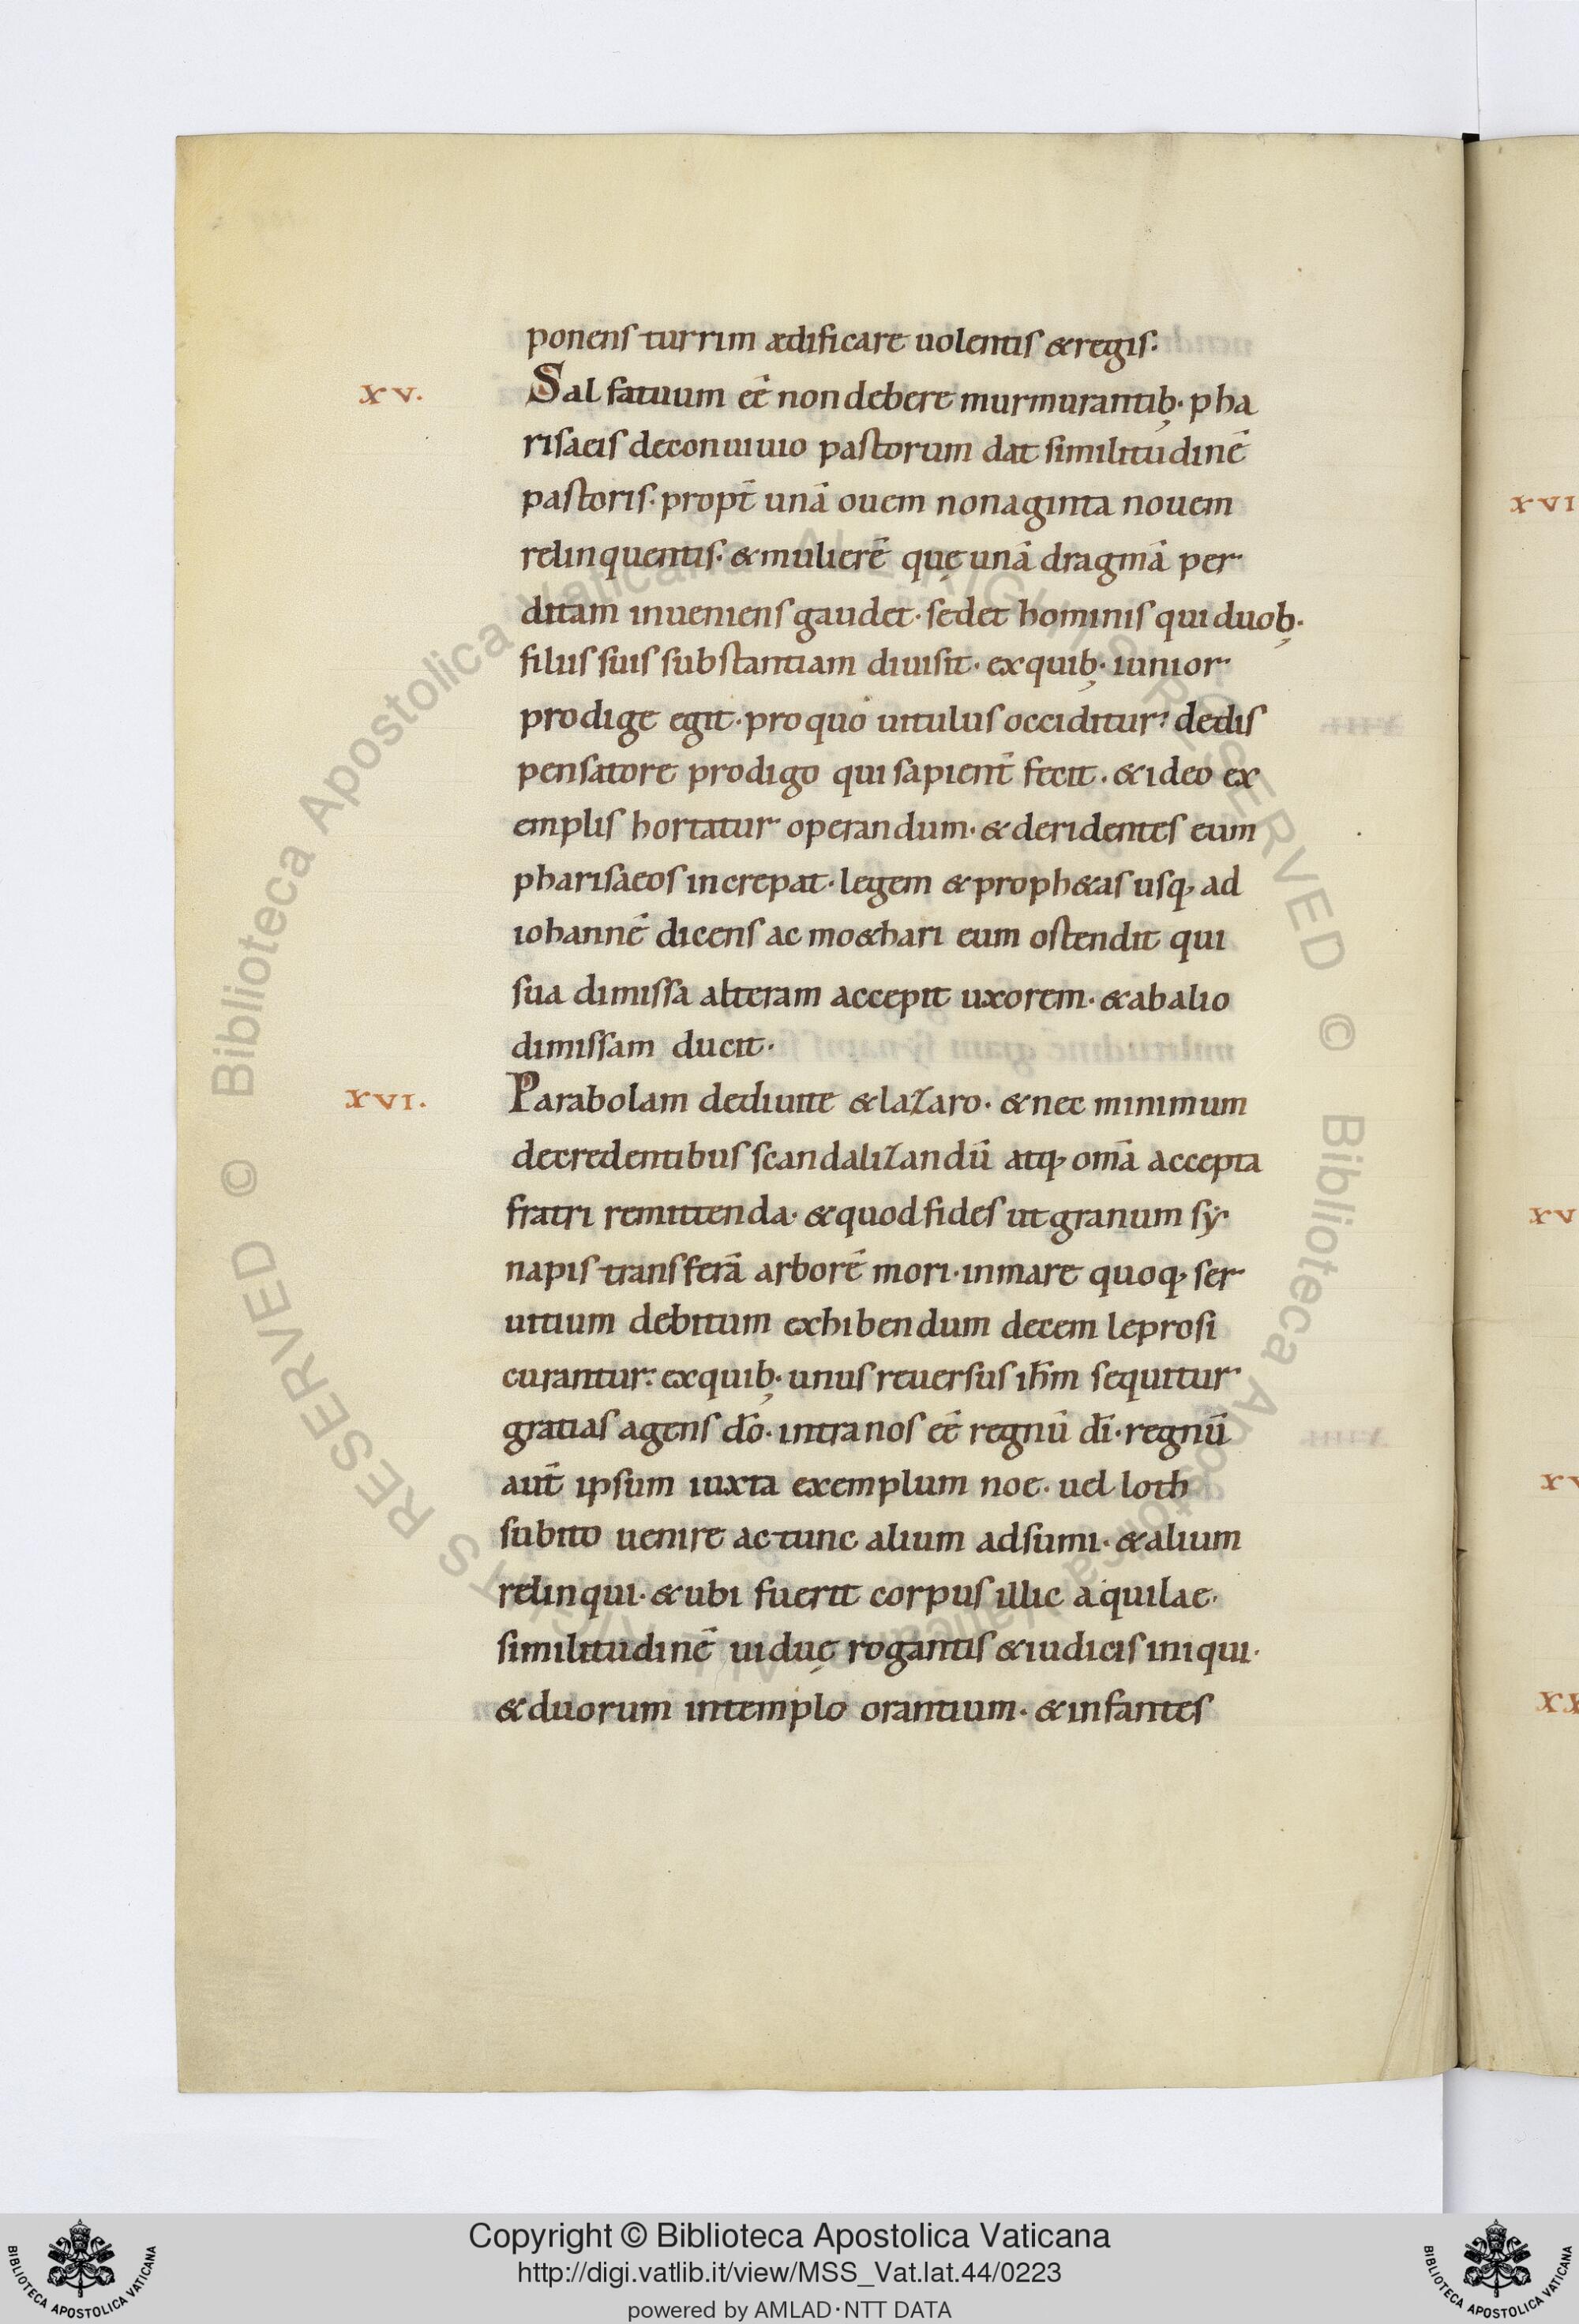 ponens turrim ædificare uolentis & regis·
XV.
Sal fatuum eē non debere murmurantib;· pha
risaeis deconuiuio pastorum dat similitudinē
pastoris· propt̄ unā ouem nonaginta nouem
relinquentis· & mulierē quę unā dragmā per
ditam inueniens gaudet· sed et hominis qui duob;·
filiis suis substantiam diuisit· ex quib;· iunior
prodige egit· pro quo uitulus occiditur· dedis
pensatore prodigo qui sapient̄ fecit· & ideo ex
emplis hortatur operandum· & deridentes eum
pharisaeos increpat· legem & proph&as usq; ad
iohannē dicens ac mo&hari eum ostendit qui
sua dimissa alteram accepit uxorem· & ab alio
dimissam ducit·
XVI.
Parabolam dediuite & lazaro· & nec minimum
decredentibus scandalizandū atq; omā accepta
fratri remittenda· & quod fides ut granum sy
napis transferā arborē mori· in mare quoq; ser
uitium debitum exhibendum decem leprosi
curantur· ex quib;· unus reuersus ihm̄ sequitur
gratias agens dō· intra nos eē regnū dī· regnū
aut̄ ipsum iuxta exemplum noe· uel loth
subito uenire ac tunc alium adsumi· & alium
relinqui· & ubi fuerit corpus illic aquilae·
similitudinē uiduę rogantis & iudicis iniqui·
& duorum in templo orantium· & infantes
XVI
XV
XV
XX
© Biblioteca Apostolica Vaticana ALL RIGHTS RESERVED © Biblioteca Apostolica Vaticana ALL RIGHTS RESERVED
BIBLIOTECA APOSTOLICA VATICANA
Copyright © Biblioteca Apostolica Vaticana
http://digi.vatlib.it/view/MSS_Vat.lat.44/0223
powered by AMLAD·NTT DATA
BIBLIOTECA APOSTOLICA VATICANA